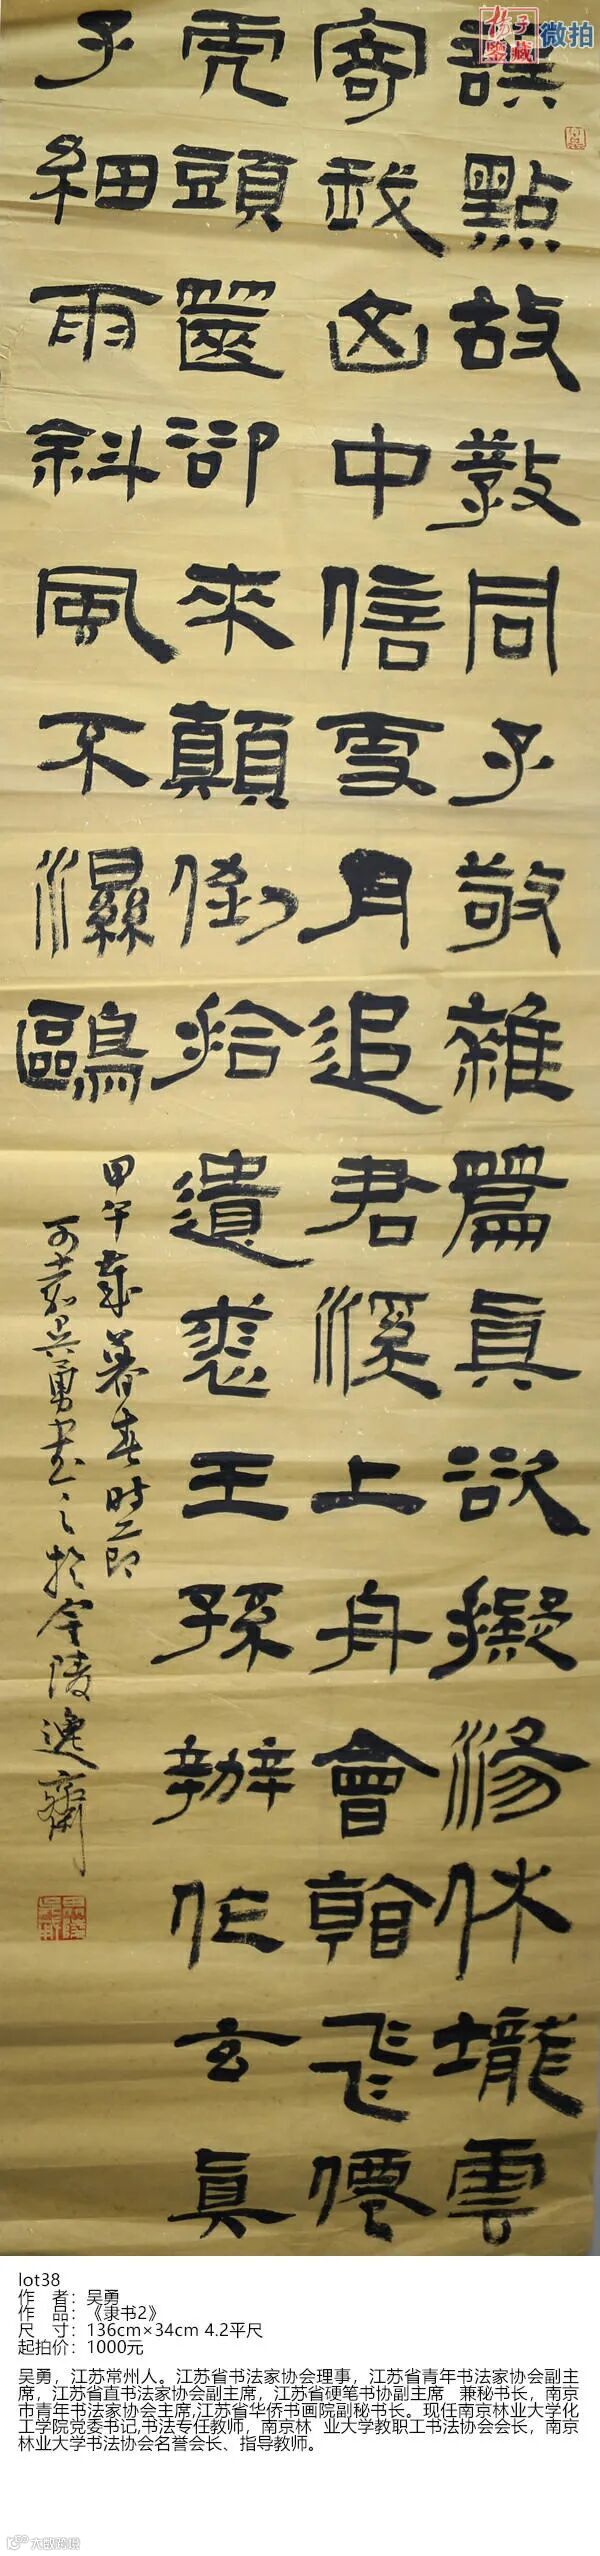 揚子
鑒藏 微拍
誤點故教同子敬雜篇真欲擬湯休壠雲
寄我山中信雪月追君溪上舟會看飛僊
虎頭篋卻來顛倒拾遺裘王孫辦作玄真
子細雨斜風不濕鷗
甲午歲暮春時節
吴勇書之於金陵逸齋
lot38
作 者：吴勇
作 品：《隶书2》
尺 寸：136cm×34cm 4.2平尺
起拍价：1000元
吴勇，江苏常州人。江苏省书法家协会理事，江苏省青年书法家协会副主
席，江苏省直书法家协会副主席，江苏省硬笔书协副主席 兼秘书长，南京
市青年书法家协会主席,江苏省华侨书画院副秘书长。现任南京林业大学化
工学院党委书记,书法专任教师，南京林 业大学教职工书法协会会长，南京
林业大学书法协会名誉会长、指导教师。
大敏跨境